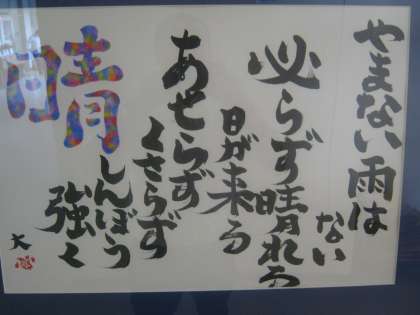 やまない雨は
ない
必らず晴れる
日が来る
あせらず
くさらず
しんぼう
強く
晴
大